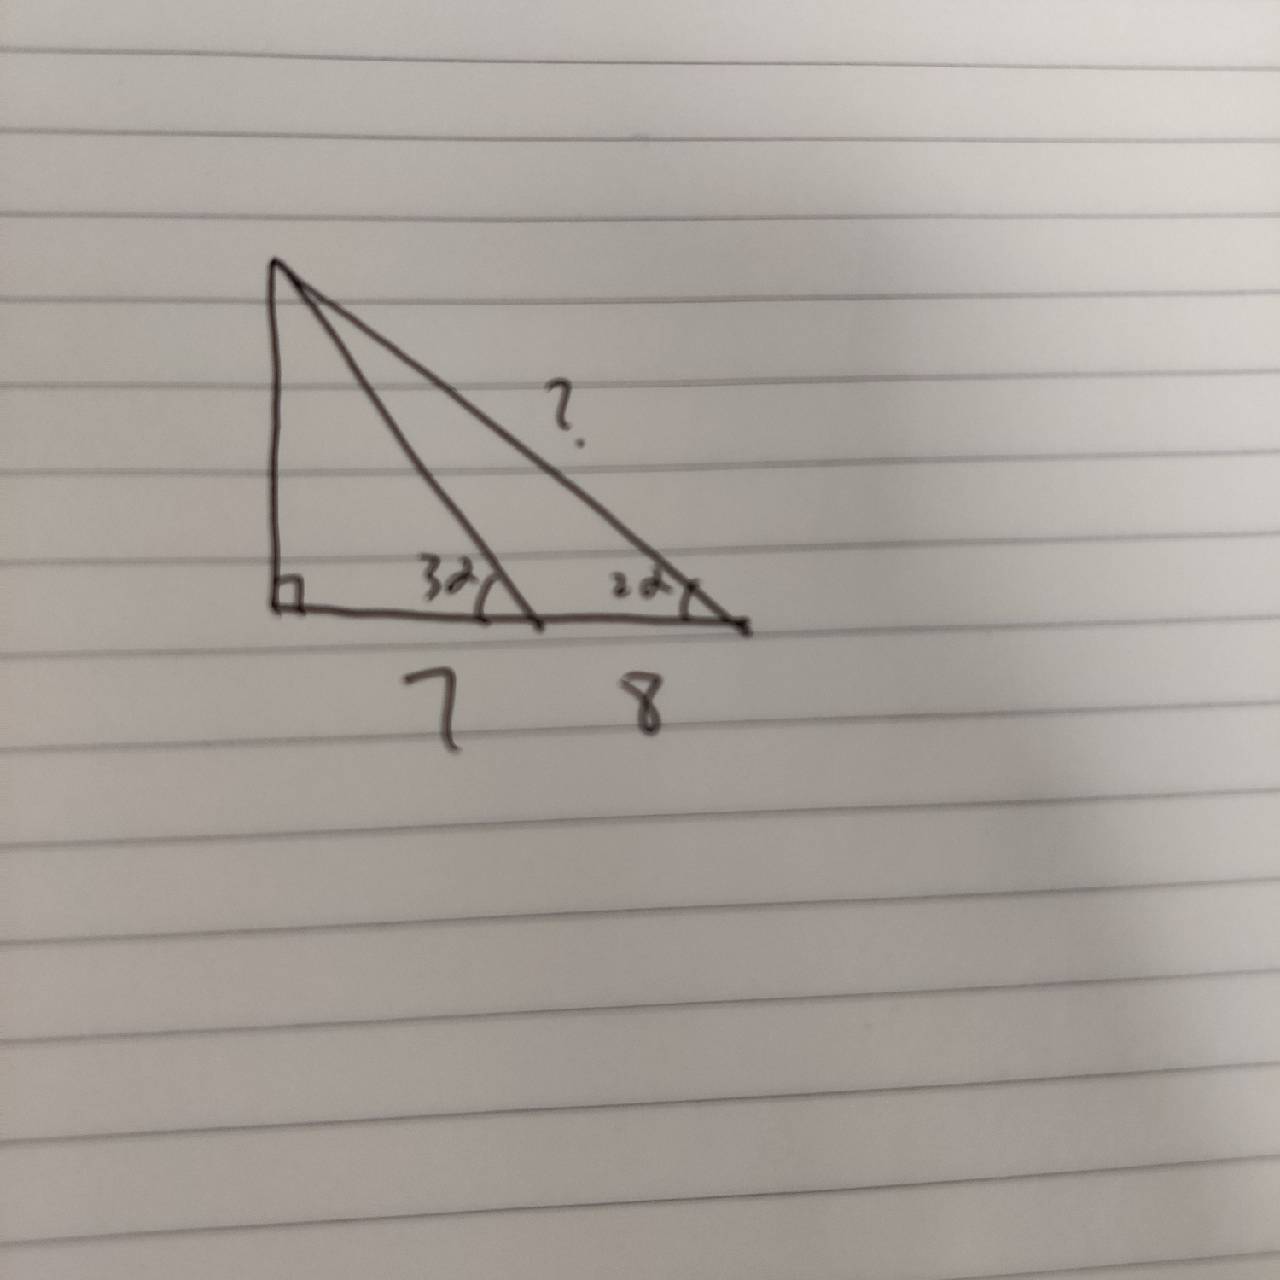 ?
3α 2α
7 8